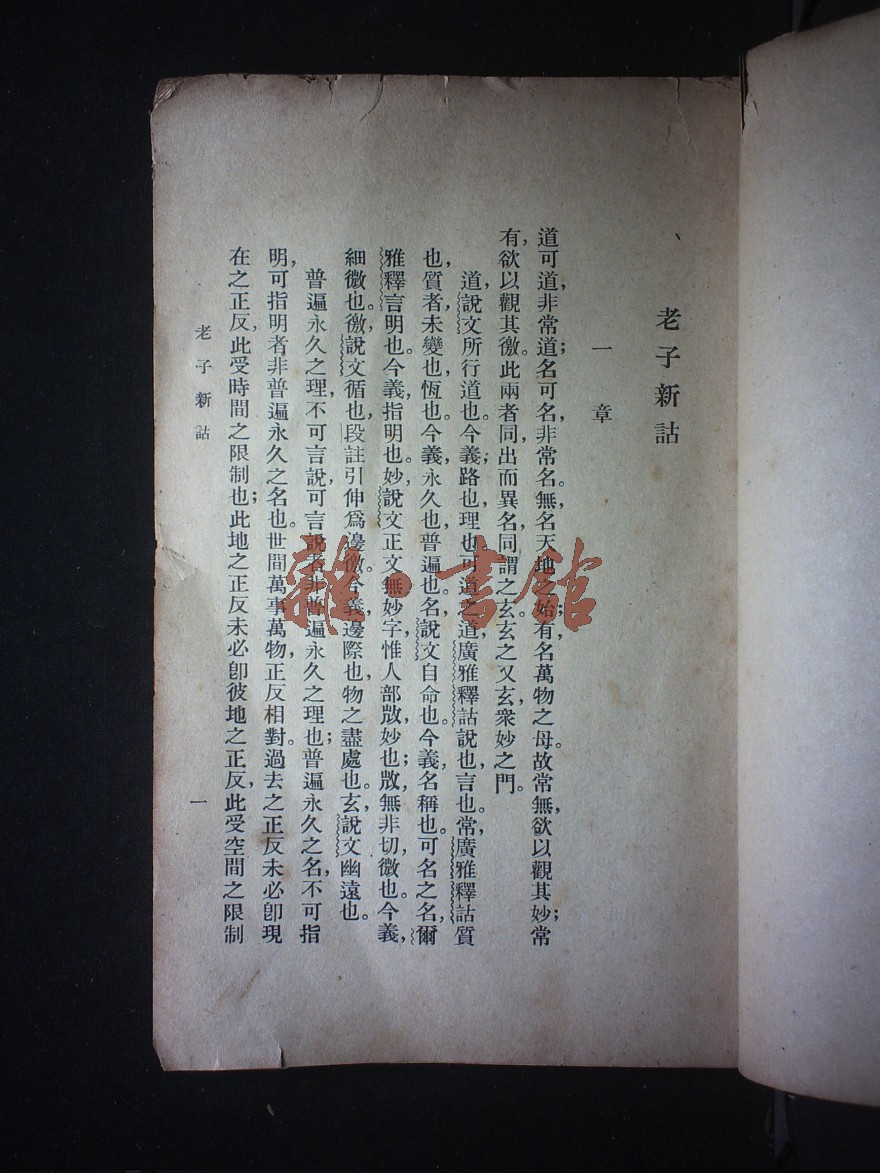 老子新詁
一章
道可道，非常道；名可名，非常名。無名天地之始；有名萬物之母。故常無，欲以觀其妙；常
有，欲以觀其徼。此兩者同，出而異名，同謂之玄。玄之又玄，衆妙之門。
道，說文所行道也。今義，路也，理也。可道之道，廣雅釋詁說也，言也。常，廣雅釋詁質
也，質者，未變也，恆也。今義，永久也，普遍也。名，說文自命也。今義，名稱也。可名之名，爾
雅釋言明也。今義，指明也。妙，說文正文無妙字，惟人部㪔，妙也；㪔，無非切，微也。今義，
細微也。徼，說文循也，段註引伸爲邊徼。今義，邊際也，物之盡處也。玄，說文幽遠也。
普遍永久之理，不可言說，可言說者，非普遍永久之理也；普遍永久之名，不可指
明，可指明者，非普遍永久之名也。世間萬事萬物，正反相對。過去之正反，未必卽現
在之正反，此受時間之限制也；此地之正反，未必卽彼地之正反，此受空間之限制
老子新詁
一
雜·書館